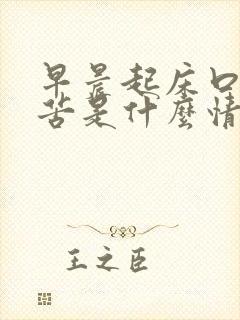 早晨起床口
苦是什麼情
王之臣